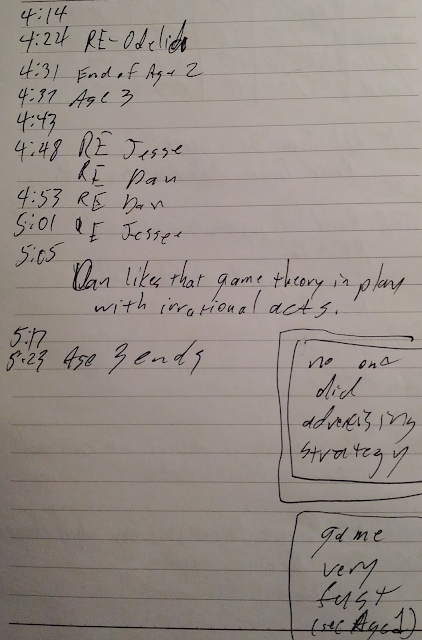 4:14
4:24 RE-Odelia
4:31 End of Age 2
4:37 Age 3
4:43
4:48 RE Jesse
RE Dan
4:53 RE Dan
5:01 RE Jesse
5:05
Dan likes that game theory in play
with irrational acts.
5:17
5:23 Age 3 ends
no one
did
advertising
strategy
game
very
fast
(see Age 1)